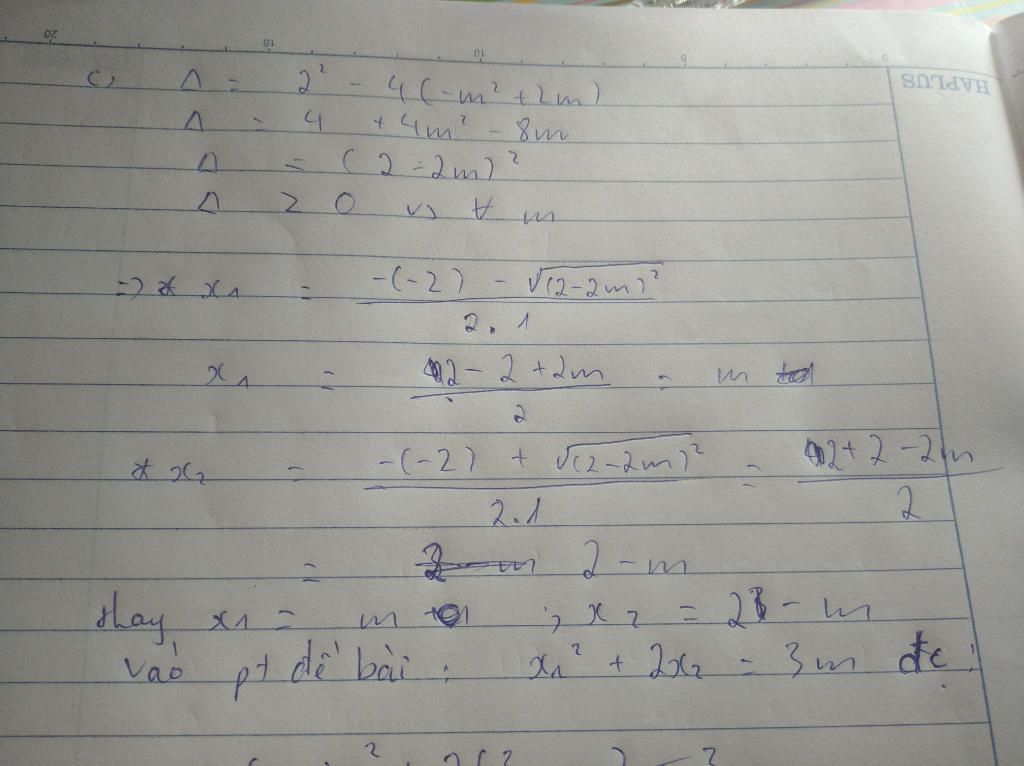 20 15 10 5 0 HAPLUS
c) Δ = 2² - 4(-m² + 2m)
Δ = 4 + 4m² - 8m
Δ = (2 - 2m)²
Δ ≥ 0 vs ∀ m
=> * x₁ = (-(-2) - √(2-2m)²) / (2.1)
x₁ = (2 - 2 + 2m) / 2 = m
* x₂ = (-(-2) + √(2-2m)²) / (2.1) = (2 + 2 - 2m) / 2
= 2 - m
thay x₁ = m ; x₂ = 2 - m
vào pt đề bài : x₁² + 2x₂ = 3m đc :